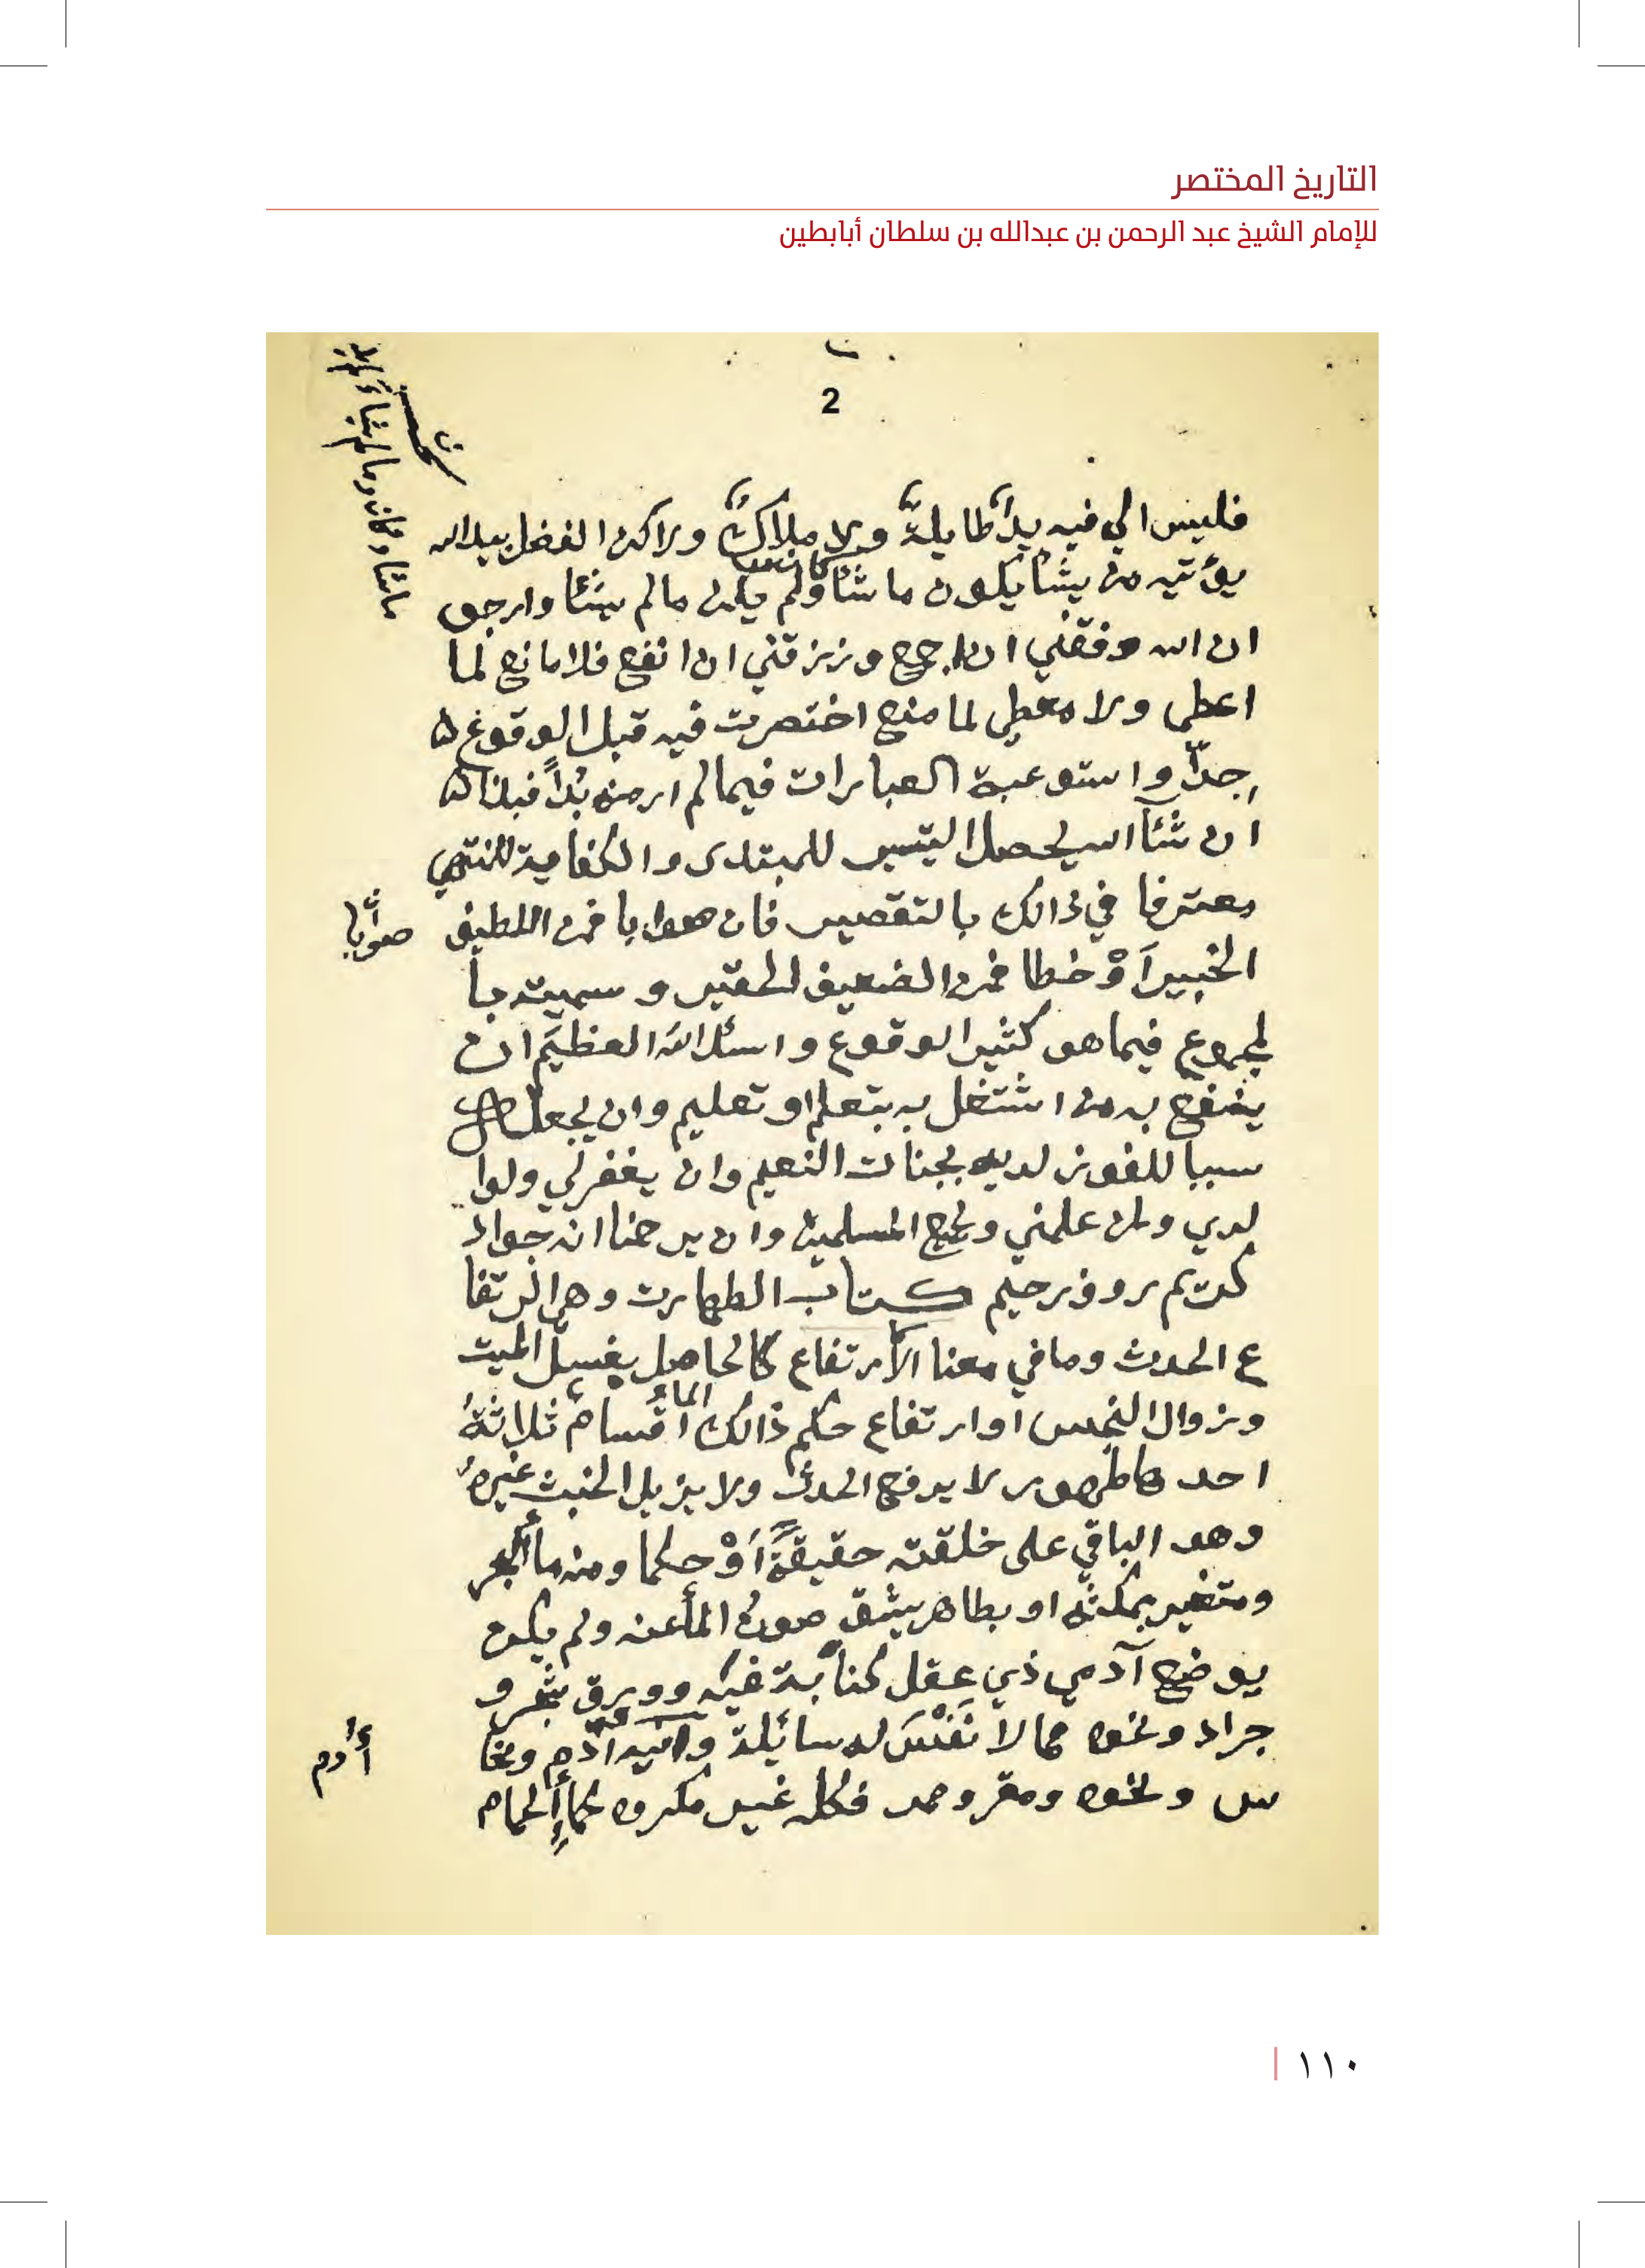 التاريخ المختصر
للإمام الشيخ عبد الرحمن بن عبدالله بن سلطان أبابطين
2
فليس الي فيه يدًا طايلة ولا ملاك ولاكن الفضل بيد الله
يؤتيه من يشأ يكون ما شأ ولم يكن مالم يشئا وارجو
ان الله وفقني ان اجمع ورزقني ان انفع فلا مانع لما
اعطى ولا معطي لما منع اختصرت فيه قبل الوقوع
جدًا واستوعبة العبارات فيما لم ار منه بُدًا فبذا
ان شئا الله يحصل التيسير للمبتدى والكفاية للمنتهي
معترفا في ذالك بالتقصير فان صوابا فمن اللطيف
صوابا
الخبير اَوْ خطا فمن الضعيف الحقير و سميته با
لمجموع فيما هو كثير الوقوع واسئل الله العظيم ان
ينفع به من اشتغل به بتعلم او تعليم وان يجعل
سببا للفوز لديه بجنات النعيم وان يغفر لي ولوا
لدي ولمن علمني وجميع المسلمين وان يرحمنا انه جواد
كريم روف رحيم كتاب الطهارت وهي الارتفا
ع الحدث وما في معنا الأرتفاع كالحاصل بغسل الميت
وزوال النجس او ارتفاع حكم ذالك الماء اقسام ثلاثة
احدها طهور لا يرفع الحدث ولا يزيل الخبث غيره
وهو الباقي على خلقته حقيقةً اَوْ حكما ومنه مأ البحر
ومتغير بمكثه او بطاهر يشق صون المأ عنه ولم يكن
بوضع آدمي ذي عقل كنابة فيه وورق شجر و
جراد ونحوه مما لا نَفْسَ له سائلة وانية أدم ونحا
أدم
س ونحوه ومقر وممر فكله غير مكروه كمأ الحمام
١١٠